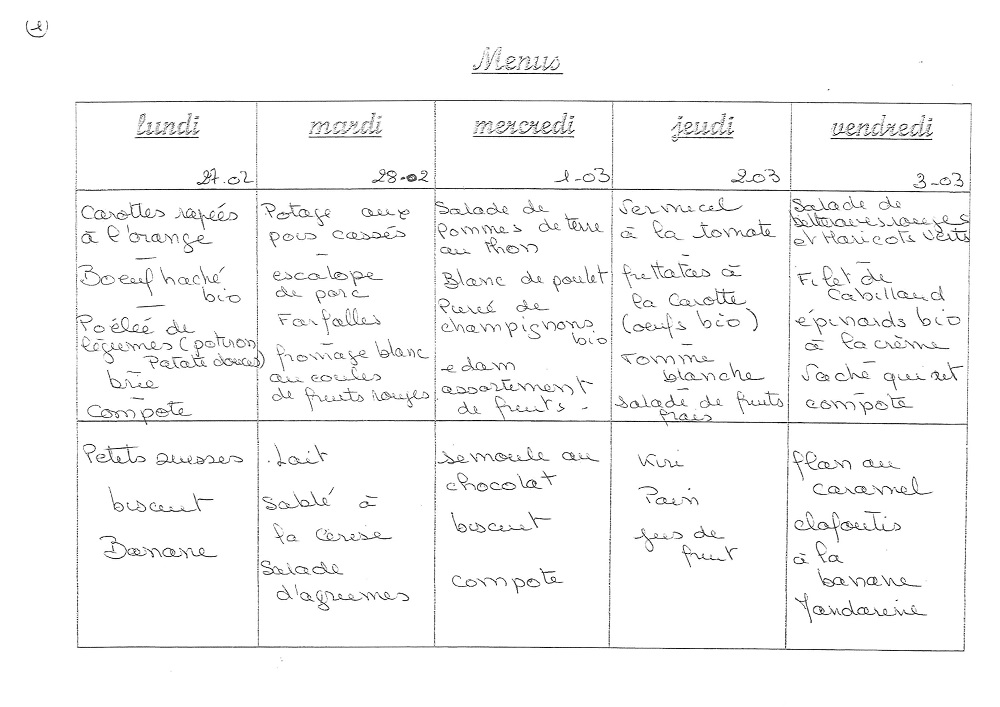 (1)
Menus
lundi
27.02
mardi
28-02
mercredi
1-03
jeudi
203
vendredi
3-03
Carottes rapées
à l'orange
—
Boeuf haché
bio
—
Poêlée de
légumes (potiron
Patate douces)
brie
—
Compote
Potage aux
pois cassés
—
escalope
de porc
Farfalles
—
fromage blanc
au coulis
de fruits rouges
Salade de
Pommes de terre
au thon
Blanc de poulet
Purée de
champignons
bio
edam
assortiment
de fruits -
Vermicel
à la tomate
—
frittatas à
la Carotte
(oeufs bio)
—
Tomme
blanche
Salade de fruits
frais
Salade de
betteraves rouges
et Haricots Verts
—
Filet de
Cabillaud
épinards bio
à la crème
Vache qui rit
compote
Petits suisses
biscuit
Banane
.Lait
Sablé à
la Cerise
Salade
d'agrumes
semoule au
chocolat
biscuit
compote
Kiri
Pain
jus de
fruit
flan au
caramel
clafoutis
à la
banane
Mandarine